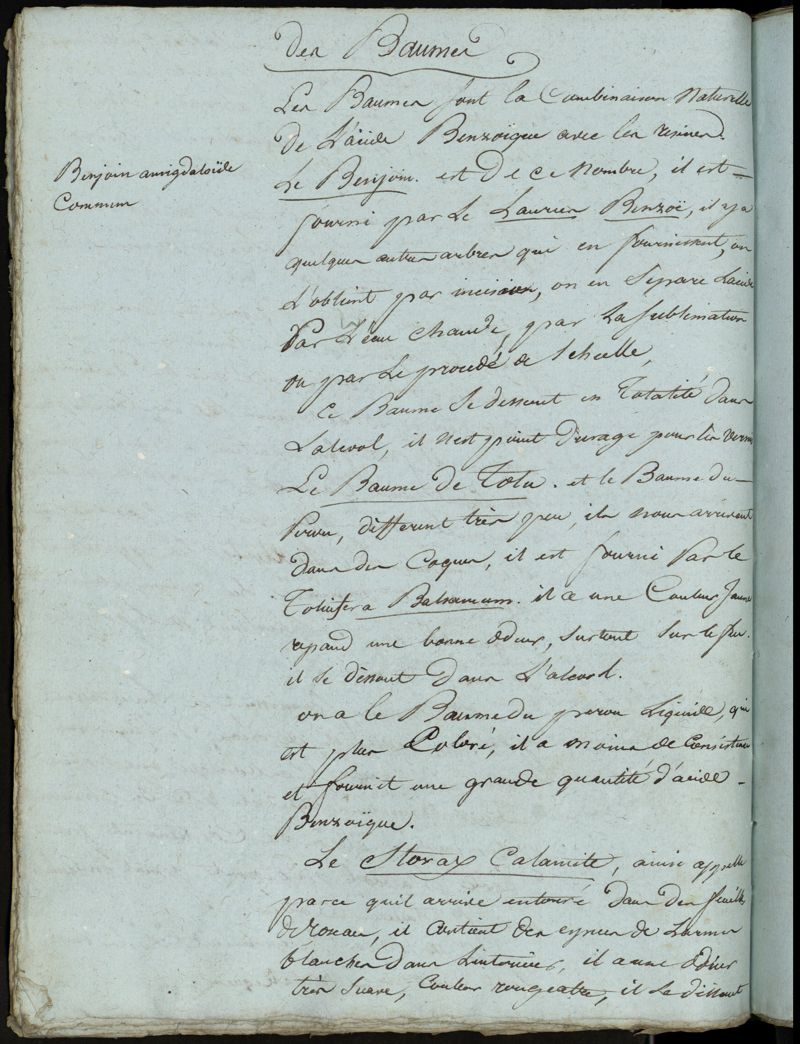 Des Baumes
Les Baumes sont la Combinaison Naturelle
de L'acide Benzoïque avec les resines.
Benjoin amigdaloïde
Commun
Le Benjoin. est De ce nombre, il est
fourni par Le Laurier Benzoë, il y a
quelques autres arbres qui en fournissent, on
L'obtient par incision, on en Separe L'acide
Par L'eau chaude, par La Sublimation
ou par Le procedé de Scheelle,
Ce Baume Se dissout en Totalité dans
L'alcool, il n'est point d'usage pour les vernis
Le Baume de Tolu. et le Baume du
Perou, different très peu, ils nous arrivent
dans des Coques, il est fourni Par le
Toluifera Balsamum. il a une Couleur Jaune
repand une bonne odeur, surtout sur le feu.
il Se dissout dans L'alcool.
on a le Baume du perou Liquide, qui
est plus Coloré, il a moins de Consistance
et fournit une grande quantité d'acide
Benzoïque.
Le Storax Calamite, ainsi appellé
parce qu'il arrive entouré dans des feuilles
de roseau, il contient des especes de Larmes
blanches dans L'interieur, il a une odeur
très Suave, Couleur rougeatre, il Se dissout